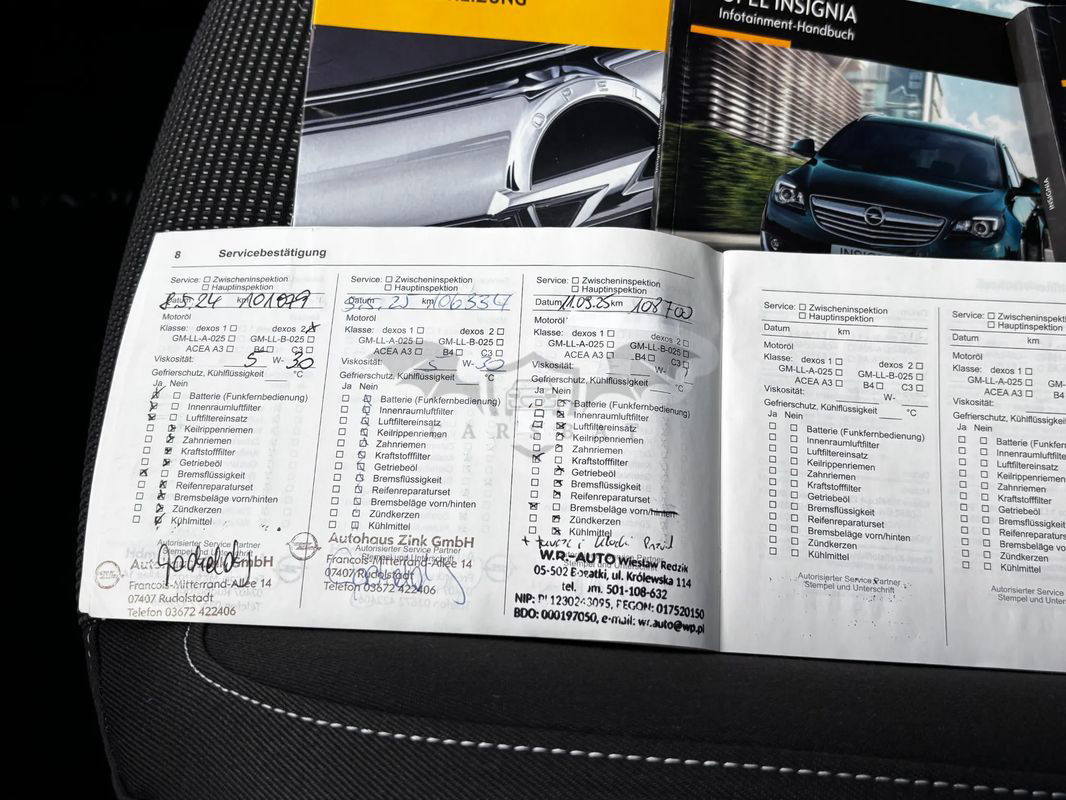 OPEL INSIGNIA
Infotainment-Handbuch
OPEL
INSIGNIA
8 Servicebestätigung
Service: ☐ Zwischeninspektion
☐ Hauptinspektion
Datum 5.24 km 101079
Motoröl
Klasse: dexos 1 ☐ dexos 2 ☒
GM-LL-A-025 ☐ GM-LL-B-025 ☐
ACEA A3 ☐ B4 ☐ C3 ☐
Viskosität: 5 W- 30
Gefrierschutz, Kühlflüssigkeit °C
Ja Nein
Batterie (Funkfernbedienung)
Innenraumluftfilter
Luftfiltereinsatz
Keilrippenriemen
Zahnriemen
Kraftstofffilter
Getriebeöl
Bremsflüssigkeit
Reifenreparaturset
Bremsbeläge vorn/hinten
Zündkerzen
Kühlmittel
Autorisierter Service Partner
Stempel und Unterschrift
Francois-Mitterrand-Allee 14
07407 Rudolstadt
Telefon 03672 422406
Service: ☐ Zwischeninspektion
☐ Hauptinspektion
Datum 5.25 km 106334
Motoröl
Klasse: dexos 1 ☐ dexos 2 ☐
GM-LL-A-025 ☐ GM-LL-B-025 ☐
ACEA A3 ☐ B4 ☐ C3 ☐
Viskosität: 5 W- 30
Gefrierschutz, Kühlflüssigkeit °C
Ja Nein
Batterie (Funkfernbedienung)
Innenraumluftfilter
Luftfiltereinsatz
Keilrippenriemen
Zahnriemen
Kraftstofffilter
Getriebeöl
Bremsflüssigkeit
Reifenreparaturset
Bremsbeläge vorn/hinten
Zündkerzen
Kühlmittel
Autohaus Zink GmbH
Autorisierter Service Partner
Stempel und Unterschrift
Francois-Mitterrand-Allee 14
07407 Rudolstadt
Telefon 03672 422406
Service: ☐ Zwischeninspektion
☐ Hauptinspektion
Datum 11.09.25 km 108700
Motoröl
Klasse: dexos 1 ☐ dexos 2 ☐
GM-LL-A-025 ☐ GM-LL-B-025 ☐
ACEA A3 ☐ B4 ☐ C3 ☐
Viskosität: W-
Gefrierschutz, Kühlflüssigkeit °C
Ja Nein
Batterie (Funkfernbedienung)
Innenraumluftfilter
Luftfiltereinsatz
Keilrippenriemen
Zahnriemen
Kraftstofffilter
Getriebeöl
Bremsflüssigkeit
Reifenreparaturset
Bremsbeläge vorn/hinten
Zündkerzen
Kühlmittel
W.R.-AUTO Wiesław Redzik
ul. Królewska 114
501-108-632
REGON: 017520150
BDO: 000197050, e-mail: wr.auto@wp.pl
Service: ☐ Zwischeninspektion
☐ Hauptinspektion
Datum km
Motoröl
Klasse: dexos 1 ☐ dexos 2 ☐
GM-LL-A-025 ☐ GM-LL-B-025 ☐
ACEA A3 ☐ B4 ☐ C3 ☐
Viskosität: W-
Gefrierschutz, Kühlflüssigkeit °C
Ja Nein
Batterie (Funkfernbedienung)
Innenraumluftfilter
Luftfiltereinsatz
Keilrippenriemen
Zahnriemen
Kraftstofffilter
Getriebeöl
Bremsflüssigkeit
Reifenreparaturset
Bremsbeläge vorn/hinten
Zündkerzen
Kühlmittel
Autorisierter Service Partner
Stempel und Unterschrift
Service: ☐ Zwischeninspektion
☐ Hauptinspektion
Datum km
Motoröl
Klasse: dexos 1 ☐
GM-LL-A-025 ☐ GM-
ACEA A3 ☐ B4
Viskosität:
Gefrierschutz, Kühlflüssigkeit
Ja Nein
Batterie (Funkfern
Innenraumluftfilter
Luftfiltereinsatz
Keilrippenriemen
Zahnriemen
Kraftstofffilter
Getriebeöl
Bremsflüssigkeit
Reifenreparaturs
Bremsbeläge vo
Zündkerzen
Kühlmittel
Autorisierter Servi
Stempel und Unter